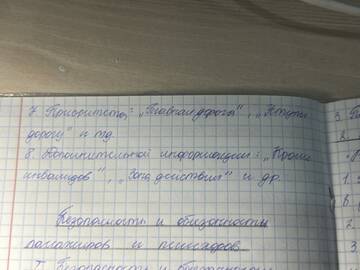 7. Приоритета: „Главная дорога", „Уступи
дорогу" и тд.
8. Дополнительной информации: „Кроме
инвалидов", „Зона действия" и др
Безопасность и обязанности
пассажиров и пешеходов